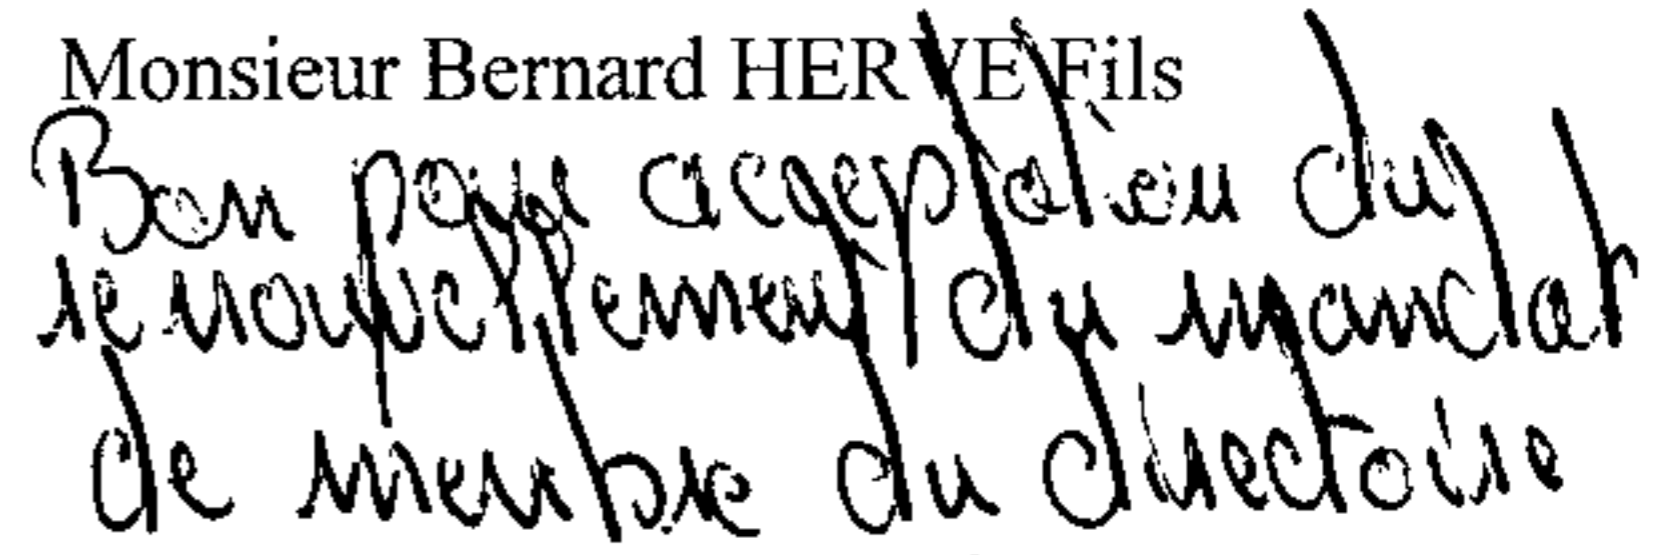 Monsieur Bernard HERVE Fils
Bon pour acceptation du
renouvellement du mandat
de membre du directoire